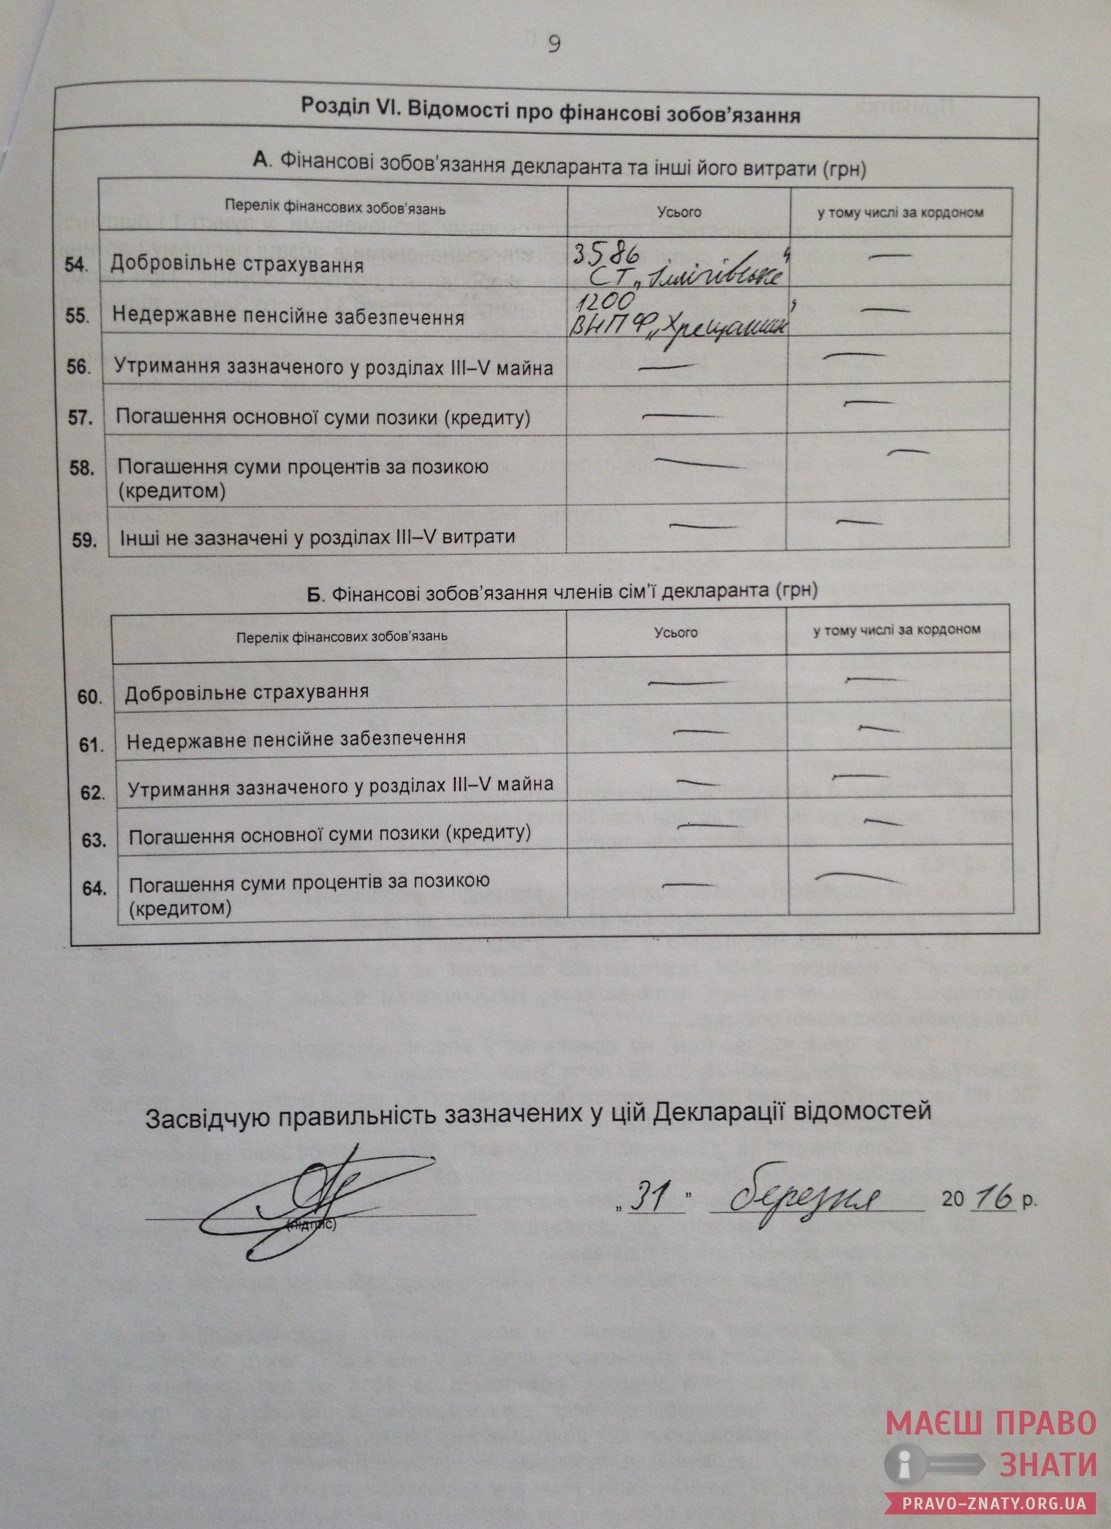 9
Розділ VI. Відомості про фінансові зобов'язання
А. Фінансові зобов'язання декларанта та інші його витрати (грн)
Перелік фінансових зобов'язань Усього у тому числі за кордоном
54. Добровільне страхування 3586 —
СТ „
55. Недержавне пенсійне забезпечення 1200 —
ВНПФ „Хрещатик"
56. Утримання зазначеного у розділах III–V майна — —
57. Погашення основної суми позики (кредиту) — —
58. Погашення суми процентів за позикою — —
(кредитом)
59. Інші не зазначені у розділах III–V витрати — —
Б. Фінансові зобов'язання членів сім'ї декларанта (грн)
Перелік фінансових зобов'язань Усього у тому числі за кордоном
60. Добровільне страхування — —
61. Недержавне пенсійне забезпечення — —
62. Утримання зазначеного у розділах III–V майна — —
63. Погашення основної суми позики (кредиту) — —
64. Погашення суми процентів за позикою — —
(кредитом)
Засвідчую правильність зазначених у цій Декларації відомостей
„31" березня 2016 р.
(підпис)
МАЄШ ПРАВО
ЗНАТИ
PRAVO-ZNATY.ORG.UA